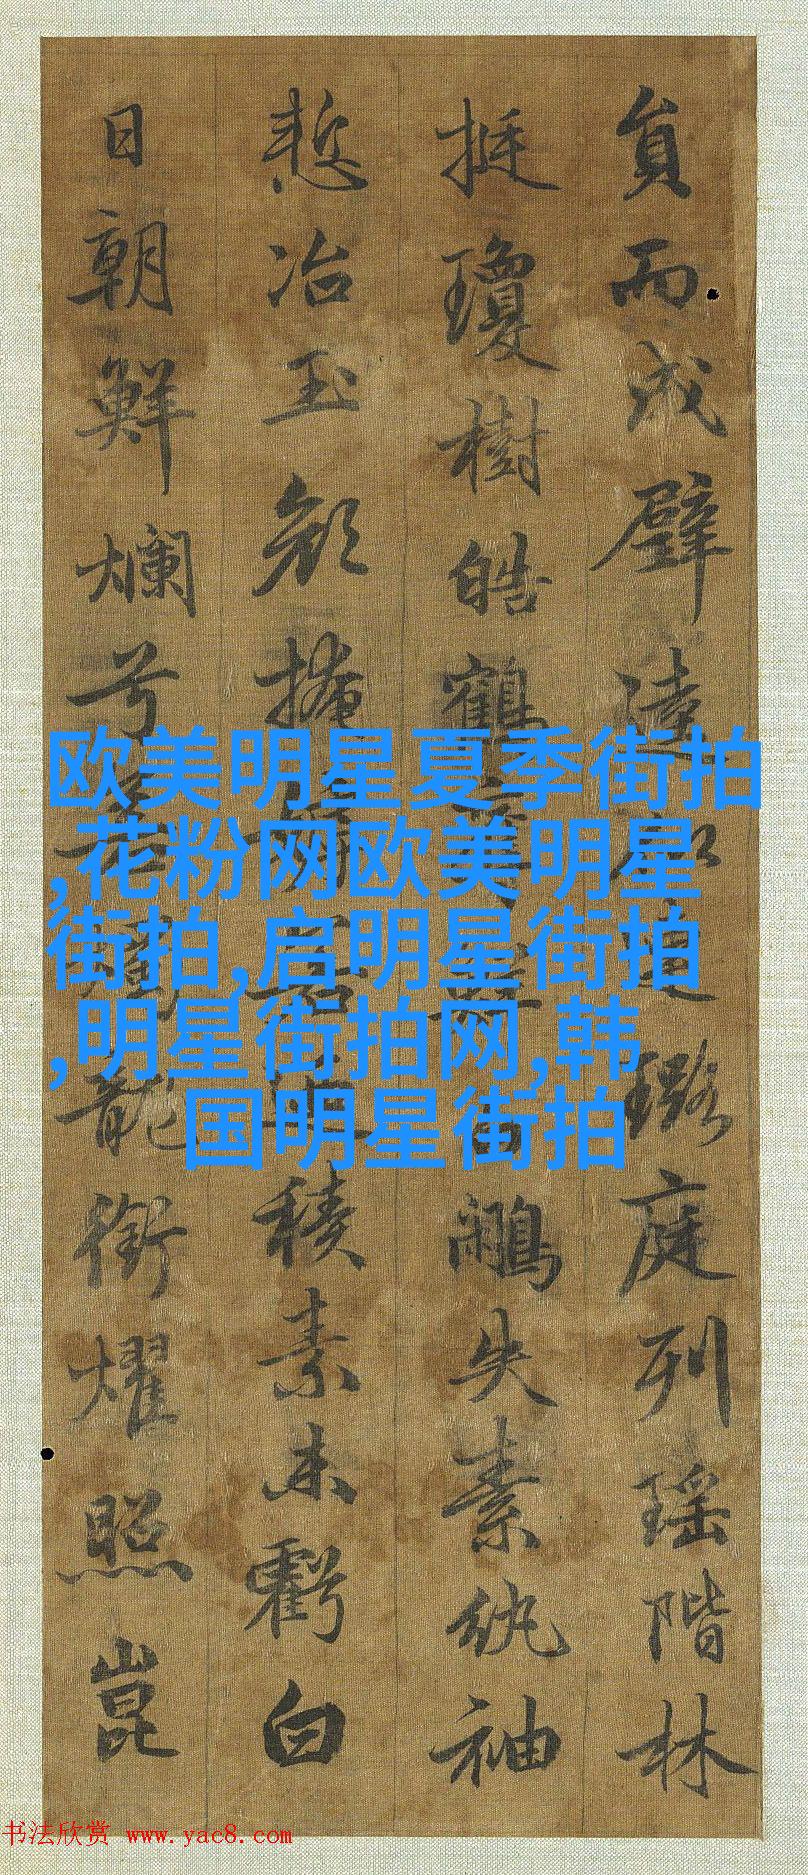 員而成璧逵璐庭列瑤階林
挺瓊樹皓鶴鷴失素紈袖
慙冶玉顏掩若積素未虧白
日朝鮮爛兮若龍銜耀照崑
欧美明星夏季街拍
,花粉网欧美明星
街拍,启明星街拍
,明星街拍网,韩
国明星街拍
书法欣赏 www.yac8.com